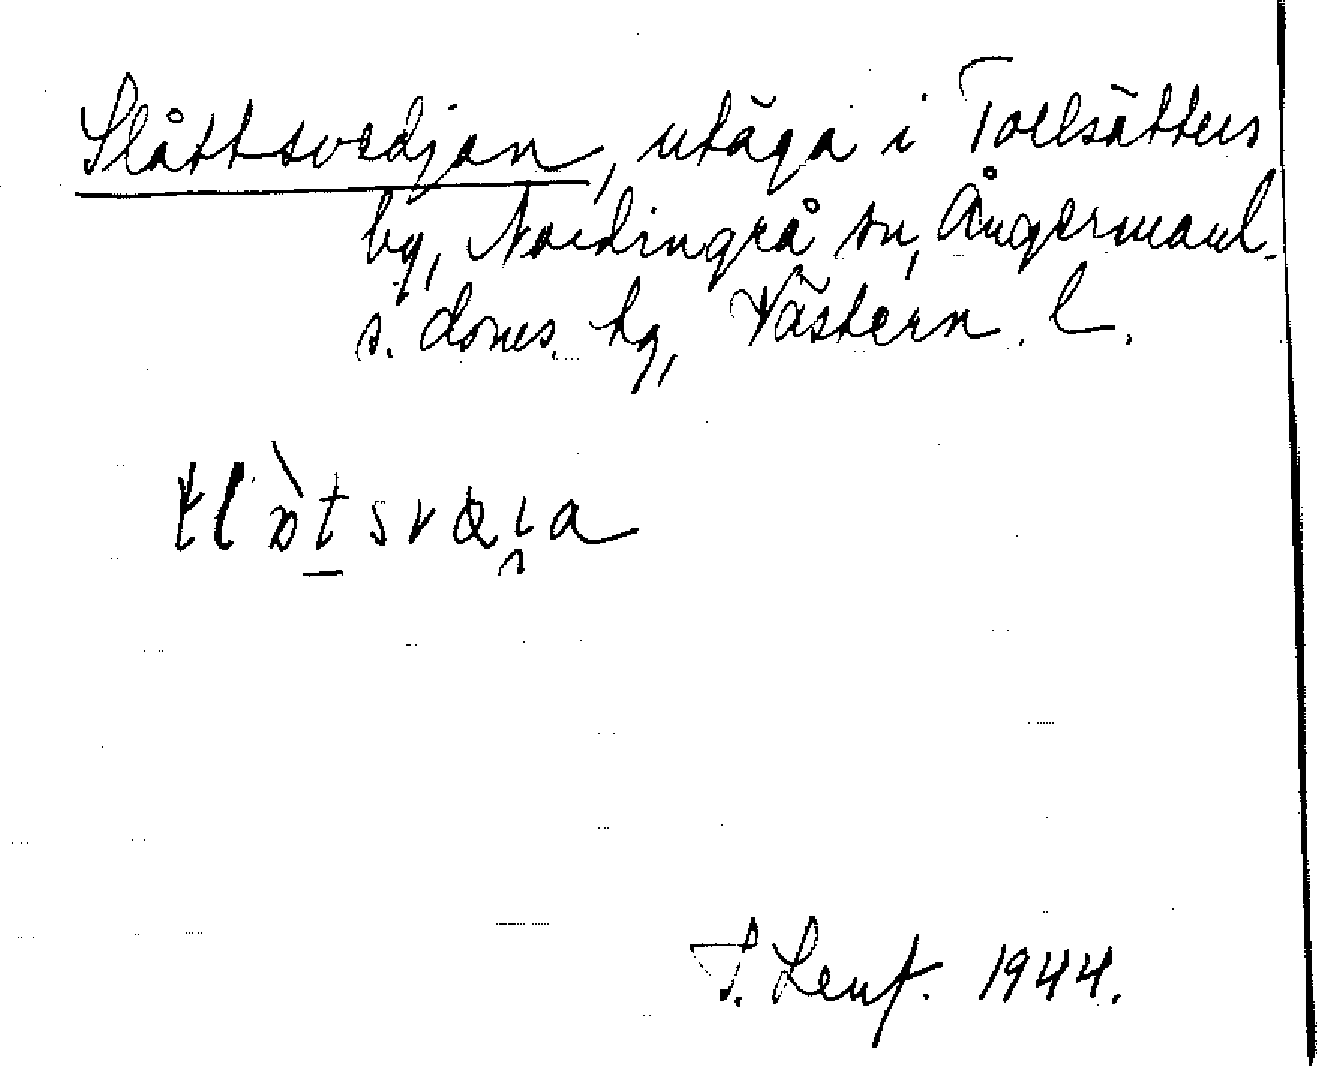 Slåttsvedjan, utäga i Tollsätters
by, Nordingrå sn, Ångermanl.
s. doms. hg, Västern. l.
S. Lenf. 1944.